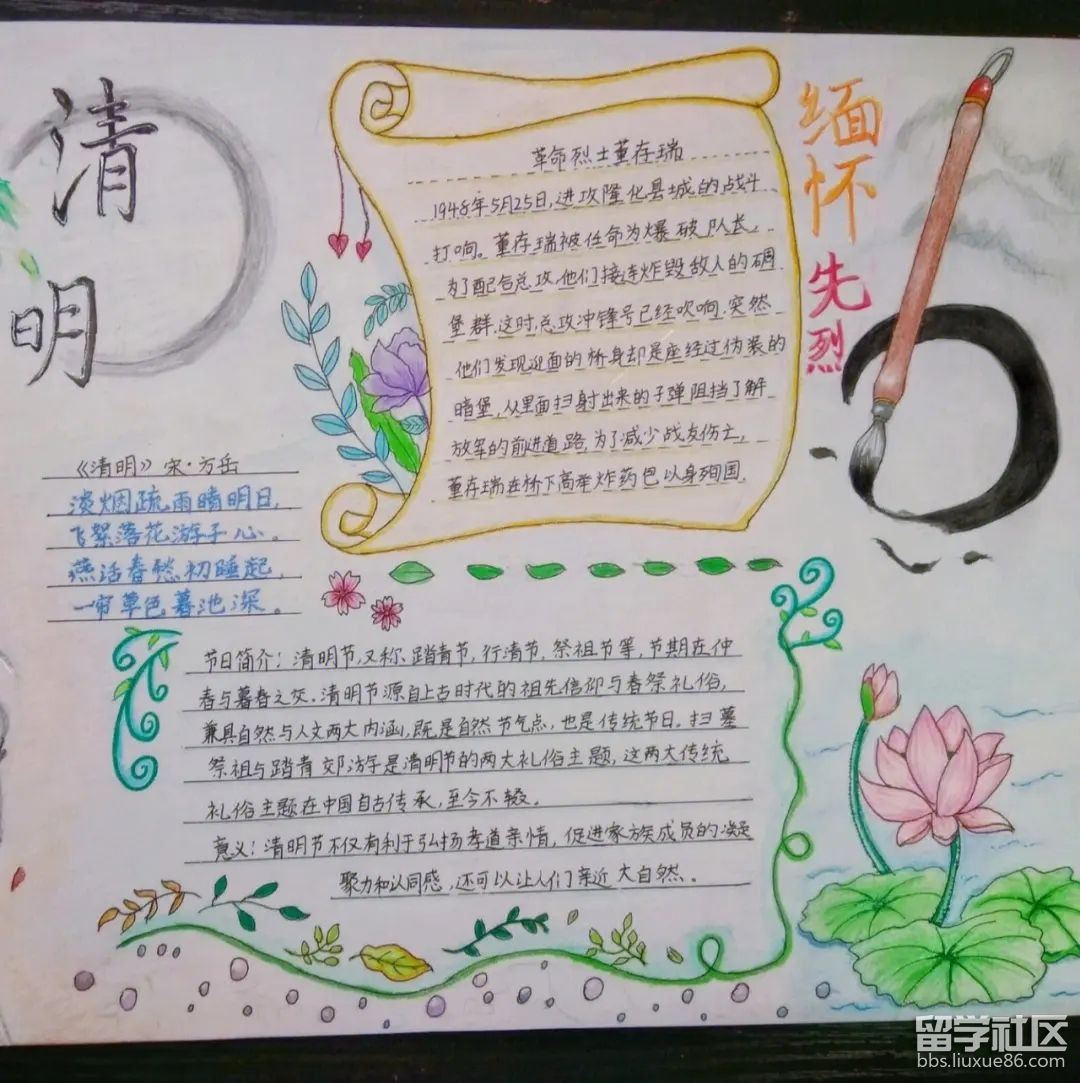 清
明
缅
怀
先
烈
革命烈士董存瑞
1948年5月25日,进攻隆化县城的战斗
打响。董存瑞被任命为爆破队长,
为了配合总攻,他们接连炸毁敌人的碉
堡群,这时,总攻冲锋号已经吹响,突然
他们发现迎面的桥身却是座经过伪装的
暗堡,从里面扫射出来的子弹阻挡了解
放军的前进道路,为了减少战友伤亡,
董存瑞在桥下高举炸药包以身殉国.
《清明》宋·方岳
淡烟疏雨晴明日,
飞絮落花游子心。
燕活春愁初睡起,
一帘草色暮池深。
节日简介:清明节,又称、踏青节,行清节,祭祖节等,节期在仲
春与暮春之交.清明节源自上古时代的祖先信仰与春祭礼俗,
兼具自然与人文两大内涵,既是自然节气点,也是传统节日。扫墓
祭祖与踏青郊游乎是清明节的两大礼俗主题,这两大传统
礼俗主题在中国自古传承,至今不辍。
意义:清明节不仅有利于弘扬孝道亲情,促进家族成员的凝
聚力和认同感,还可以让人们亲近大自然。
留学社区
bbs.liuxue86.com